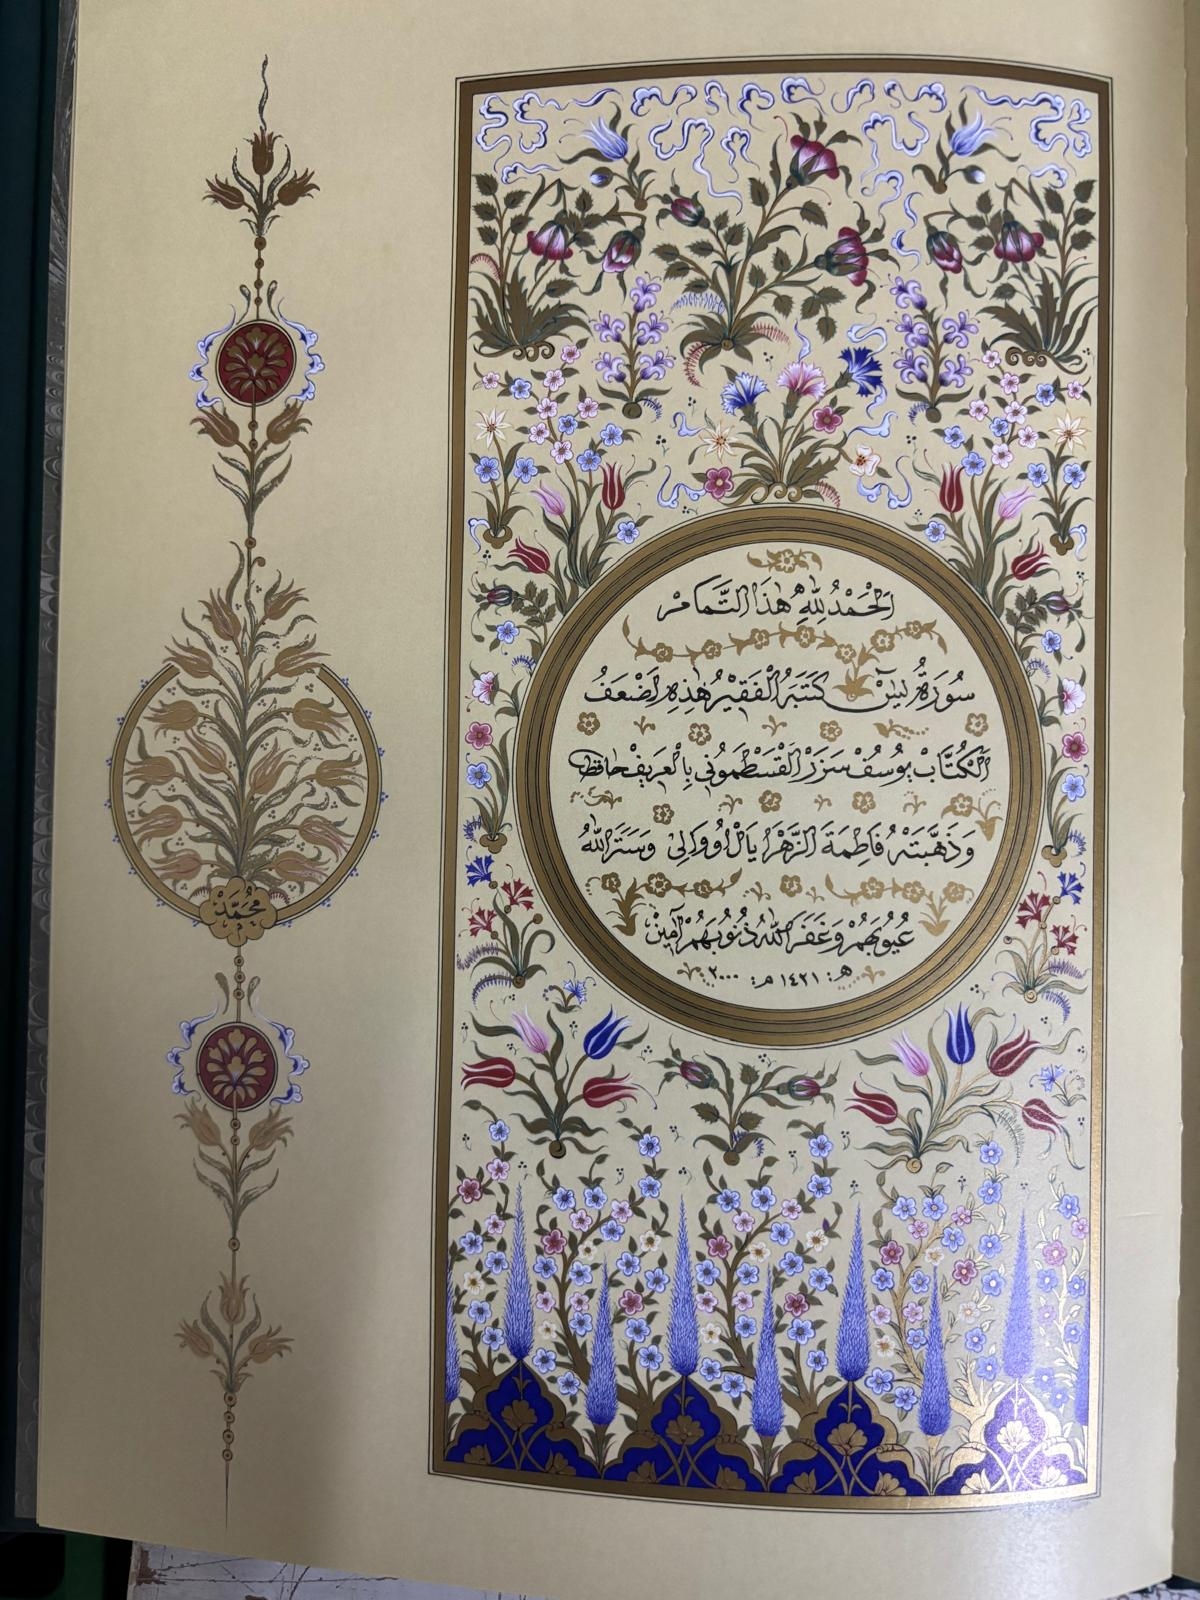 اَلْحَمْدُ لِلّٰهِ هٰذَا التَّمَامُ
سُورَةُ يٰسٓ كَتَبَهُ الْفَقِيرُ هٰذِهِ اَضْعَفُ
الْكُتَّابْ يُوسُفْ سَزَرْ الْقَسْطَمُونِي بِالْعَرِيفْ حَافِظْ
وَذَهَّبَتْهُ فَاطِمَةَ الزَّهْرَا وَسَتَرَ اللّٰهُ
عُيُوبَهُمْ وَغَفَرَ اللّٰهُ ذُنُوبَهُمْ اٰمِينْ
هـ: ١٤٢١ م: ٢٠٠٠
مُحَمَّدْ